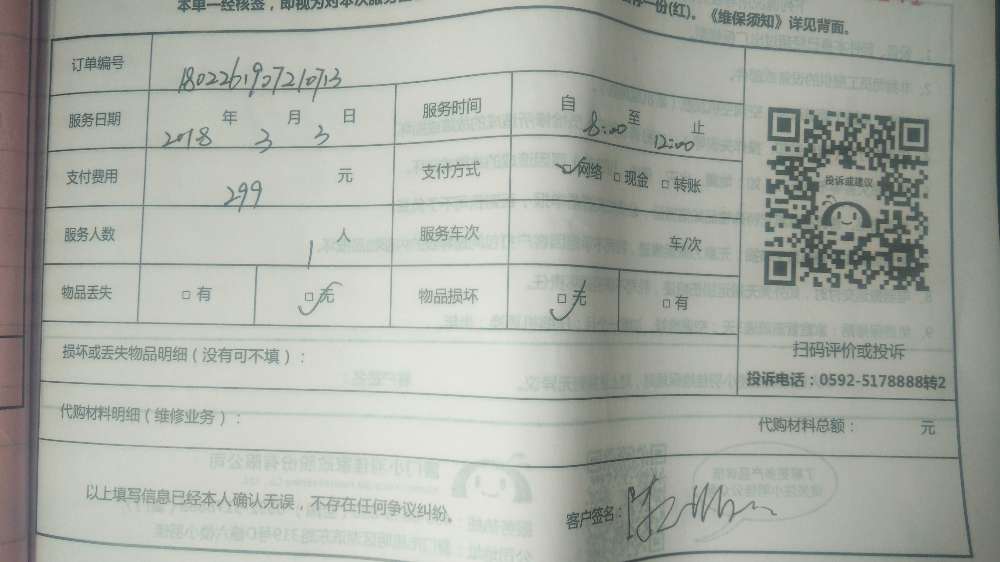 本单一经核签，即视为对本次服务
一份(红)。《维保须知》详见背面。
订单编号 1802261907210713
服务日期 2018 年 3 月 3 日 服务时间 自 8:00 至 12:00 止
支付费用 299 元 支付方式 ☑网络 □现金 □转账
服务人数 1 人 服务车次 车/次
物品丢失 □有 ☑无 物品损坏 ☑无 □有
投诉或建议
扫码评价或投诉
投诉电话：0592-5178888转2
损坏或丢失物品明细（没有可不填）：
代购材料明细（维修业务）： 代购材料总额： 元
以上填写信息已经本人确认无误，不存在任何争议纠纷。 客户签名：